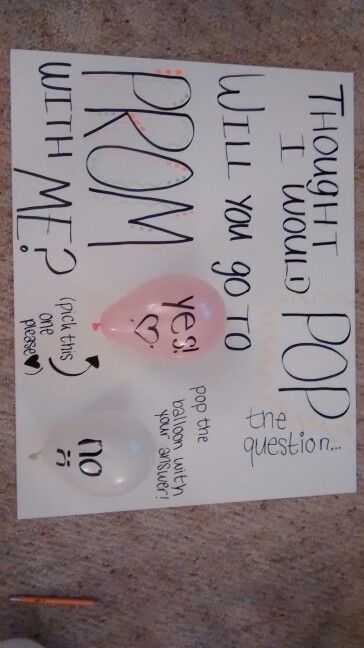 THOUGHT
I WOULD POP
the
question...
WILL YOU GO TO
PROM
WITH ME?
yes! ♡
(pick this
one
please♥)
pop the
balloon with
your answer!
no
:(